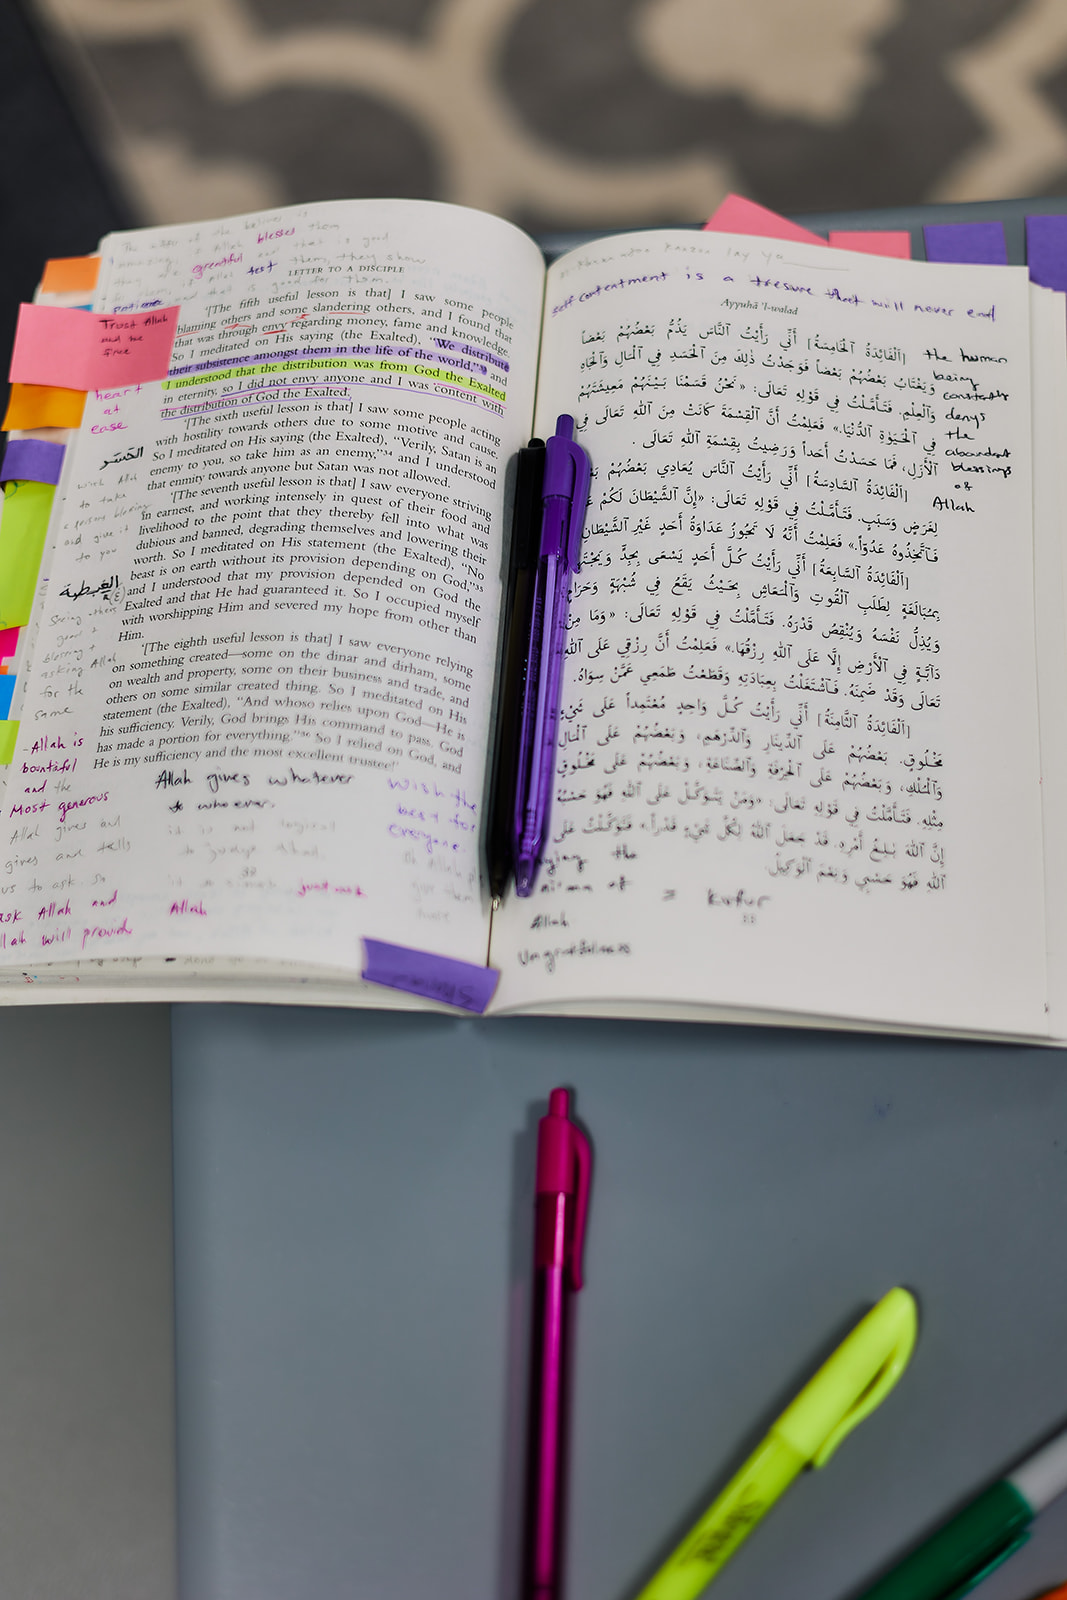 The affair of the believer is
amazing, if Allah blesses them
they are grateful and that is good
if Allah test them, they show
patience and that is good for them.
LETTER TO A DISCIPLE
'[The fifth useful lesson is that] I saw some people
blaming others and some slandering others, and I found that
that was through envy regarding money, fame and knowledge.
So I meditated on His saying (the Exalted), "We distribute
their subsistence amongst them in the life of the world," and
I understood that the distribution was from God the Exalted
in eternity, so I did not envy anyone and I was content with
the distribution of God the Exalted.
'[The sixth useful lesson is that] I saw some people acting
with hostility towards others due to some motive and cause.
So I meditated on His saying (the Exalted), "Verily, Satan is an
enemy to you, so take him as an enemy,"34 and I understood
that enmity towards anyone but Satan was not allowed.
'[The seventh useful lesson is that] I saw everyone striving
in earnest, and working intensely in quest of their food and
livelihood to the point that they thereby fell into what was
dubious and banned, degrading themselves and lowering their
worth. So I meditated on His statement (the Exalted), "No
beast is on earth without its provision depending on God,"35
and I understood that my provision depended on God the
Exalted and that He had guaranteed it. So I occupied myself
with worshipping Him and severed my hope from other than
Him.
'[The eighth useful lesson is that] I saw everyone relying
on something created—some on the dinar and dirham, some
on wealth and property, some on their business and trade, and
others on some similar created thing. So I meditated on His
statement (the Exalted), "And whoso relies upon God—He is
his sufficiency. Verily, God brings His command to pass. God
has made a portion for everything."36 So I relied on God, and
He is my sufficiency and the most excellent trustee!'
Trust Allah
and be
free
heart
at
ease
الحسد
wish Allah
to take
a person blessing
and give it
to you
الغبطة
Seeing others
good +
blessing +
asking Allah
for the
same
- Allah is
bountiful
and the
Most generous
Allah gives and
gives and tells
us to ask. so
ask Allah and
Allah will provide
Allah gives whatever
to whoever.
it is not logical
to judge Allah.
just ask
Allah
wish the
best for
everyone.
self contentment is a tresure that will never end
Ayyuhā 'l-walad
[الْفَائِدَةُ الْخَامِسَةُ] أَنِّي رَأَيْتُ النَّاسَ يَذُمُّ بَعْضُهُمْ بَعْضاً
وَيَغْتَابُ بَعْضُهُمْ بَعْضاً فَوَجَدْتُ ذٰلِكَ مِنَ الْحَسَدِ فِي الْمَالِ وَالْجَاهِ
وَالْعِلْمِ. فَتَأَمَّلْتُ فِي قَوْلِهِ تَعَالَى: «نَحْنُ قَسَمْنَا بَيْنَهُمْ مَعِيشَتَهُمْ
فِي الْحَيَوٰةِ الدُّنْيَا.» فَعَلِمْتُ أَنَّ الْقِسْمَةَ كَانَتْ مِنَ اللهِ تَعَالَى فِي
الْأَزَلِ، فَمَا حَسَدْتُ أَحَداً وَرَضِيتُ بِقِسْمَةِ اللهِ تَعَالَى.
[الْفَائِدَةُ السَّادِسَةُ] أَنِّي رَأَيْتُ النَّاسَ يُعَادِي بَعْضُهُمْ
لِغَرَضٍ وَسَبَبٍ. فَتَأَمَّلْتُ فِي قَوْلِهِ تَعَالَى: «إِنَّ الشَّيْطَانَ لَكُمْ
فَاتَّخِذُوهُ عَدُوّاً.» فَعَلِمْتُ أَنَّهُ لَا تَجُوزُ عَدَاوَةُ أَحَدٍ غَيْرِ الشَّيْطَانِ
[الْفَائِدَةُ السَّابِعَةُ] أَنِّي رَأَيْتُ كُلَّ أَحَدٍ يَسْعَى بِجِدٍّ وَيَجْتَهِدُ
بِمُبَالَغَةٍ لِطَلَبِ الْقُوتِ وَالْمَعَاشِ بِحَيْثُ يَقَعُ فِي شُبْهَةٍ وَحَرَامٍ
وَيُذِلُّ نَفْسَهُ وَيُنْقِصُ قَدْرَهُ. فَتَأَمَّلْتُ فِي قَوْلِهِ تَعَالَى: «وَمَا مِنْ
دَابَّةٍ فِي الْأَرْضِ إِلَّا عَلَى اللهِ رِزْقُهَا.» فَعَلِمْتُ أَنَّ رِزْقِي عَلَى اللهِ
تَعَالَى وَقَدْ ضَمِنَهُ. فَاشْتَغَلْتُ بِعِبَادَتِهِ وَقَطَعْتُ طَمَعِي عَمَّنْ سِوَاهُ.
[الْفَائِدَةُ الثَّامِنَةُ] أَنِّي رَأَيْتُ كُلَّ وَاحِدٍ مُعْتَمِداً عَلَى شَيْءٍ
مَخْلُوقٍ. بَعْضُهُمْ عَلَى الدِّينَارِ وَالدِّرْهَمِ، وَبَعْضُهُمْ عَلَى الْمَالِ
وَالْمُلْكِ، وَبَعْضُهُمْ عَلَى الْحِرْفَةِ وَالصِّنَاعَةِ، وَبَعْضُهُمْ عَلَى مَخْلُوقٍ
مِثْلِهِ. فَتَأَمَّلْتُ فِي قَوْلِهِ تَعَالَى: «وَمَنْ يَتَوَكَّلْ عَلَى اللهِ فَهُوَ حَسْبُهُ
إِنَّ اللهَ بَالِغُ أَمْرِهِ. قَدْ جَعَلَ اللهُ لِكُلِّ شَيْءٍ قَدْراً.» فَتَوَكَّلْتُ عَلَى
اللهِ فَهُوَ حَسْبِي وَنِعْمَ الْوَكِيلُ
the human
being
constantly
denys
the
abundant
blessings
of
Allah
the
of = kufur
Allah
Ungratefulness